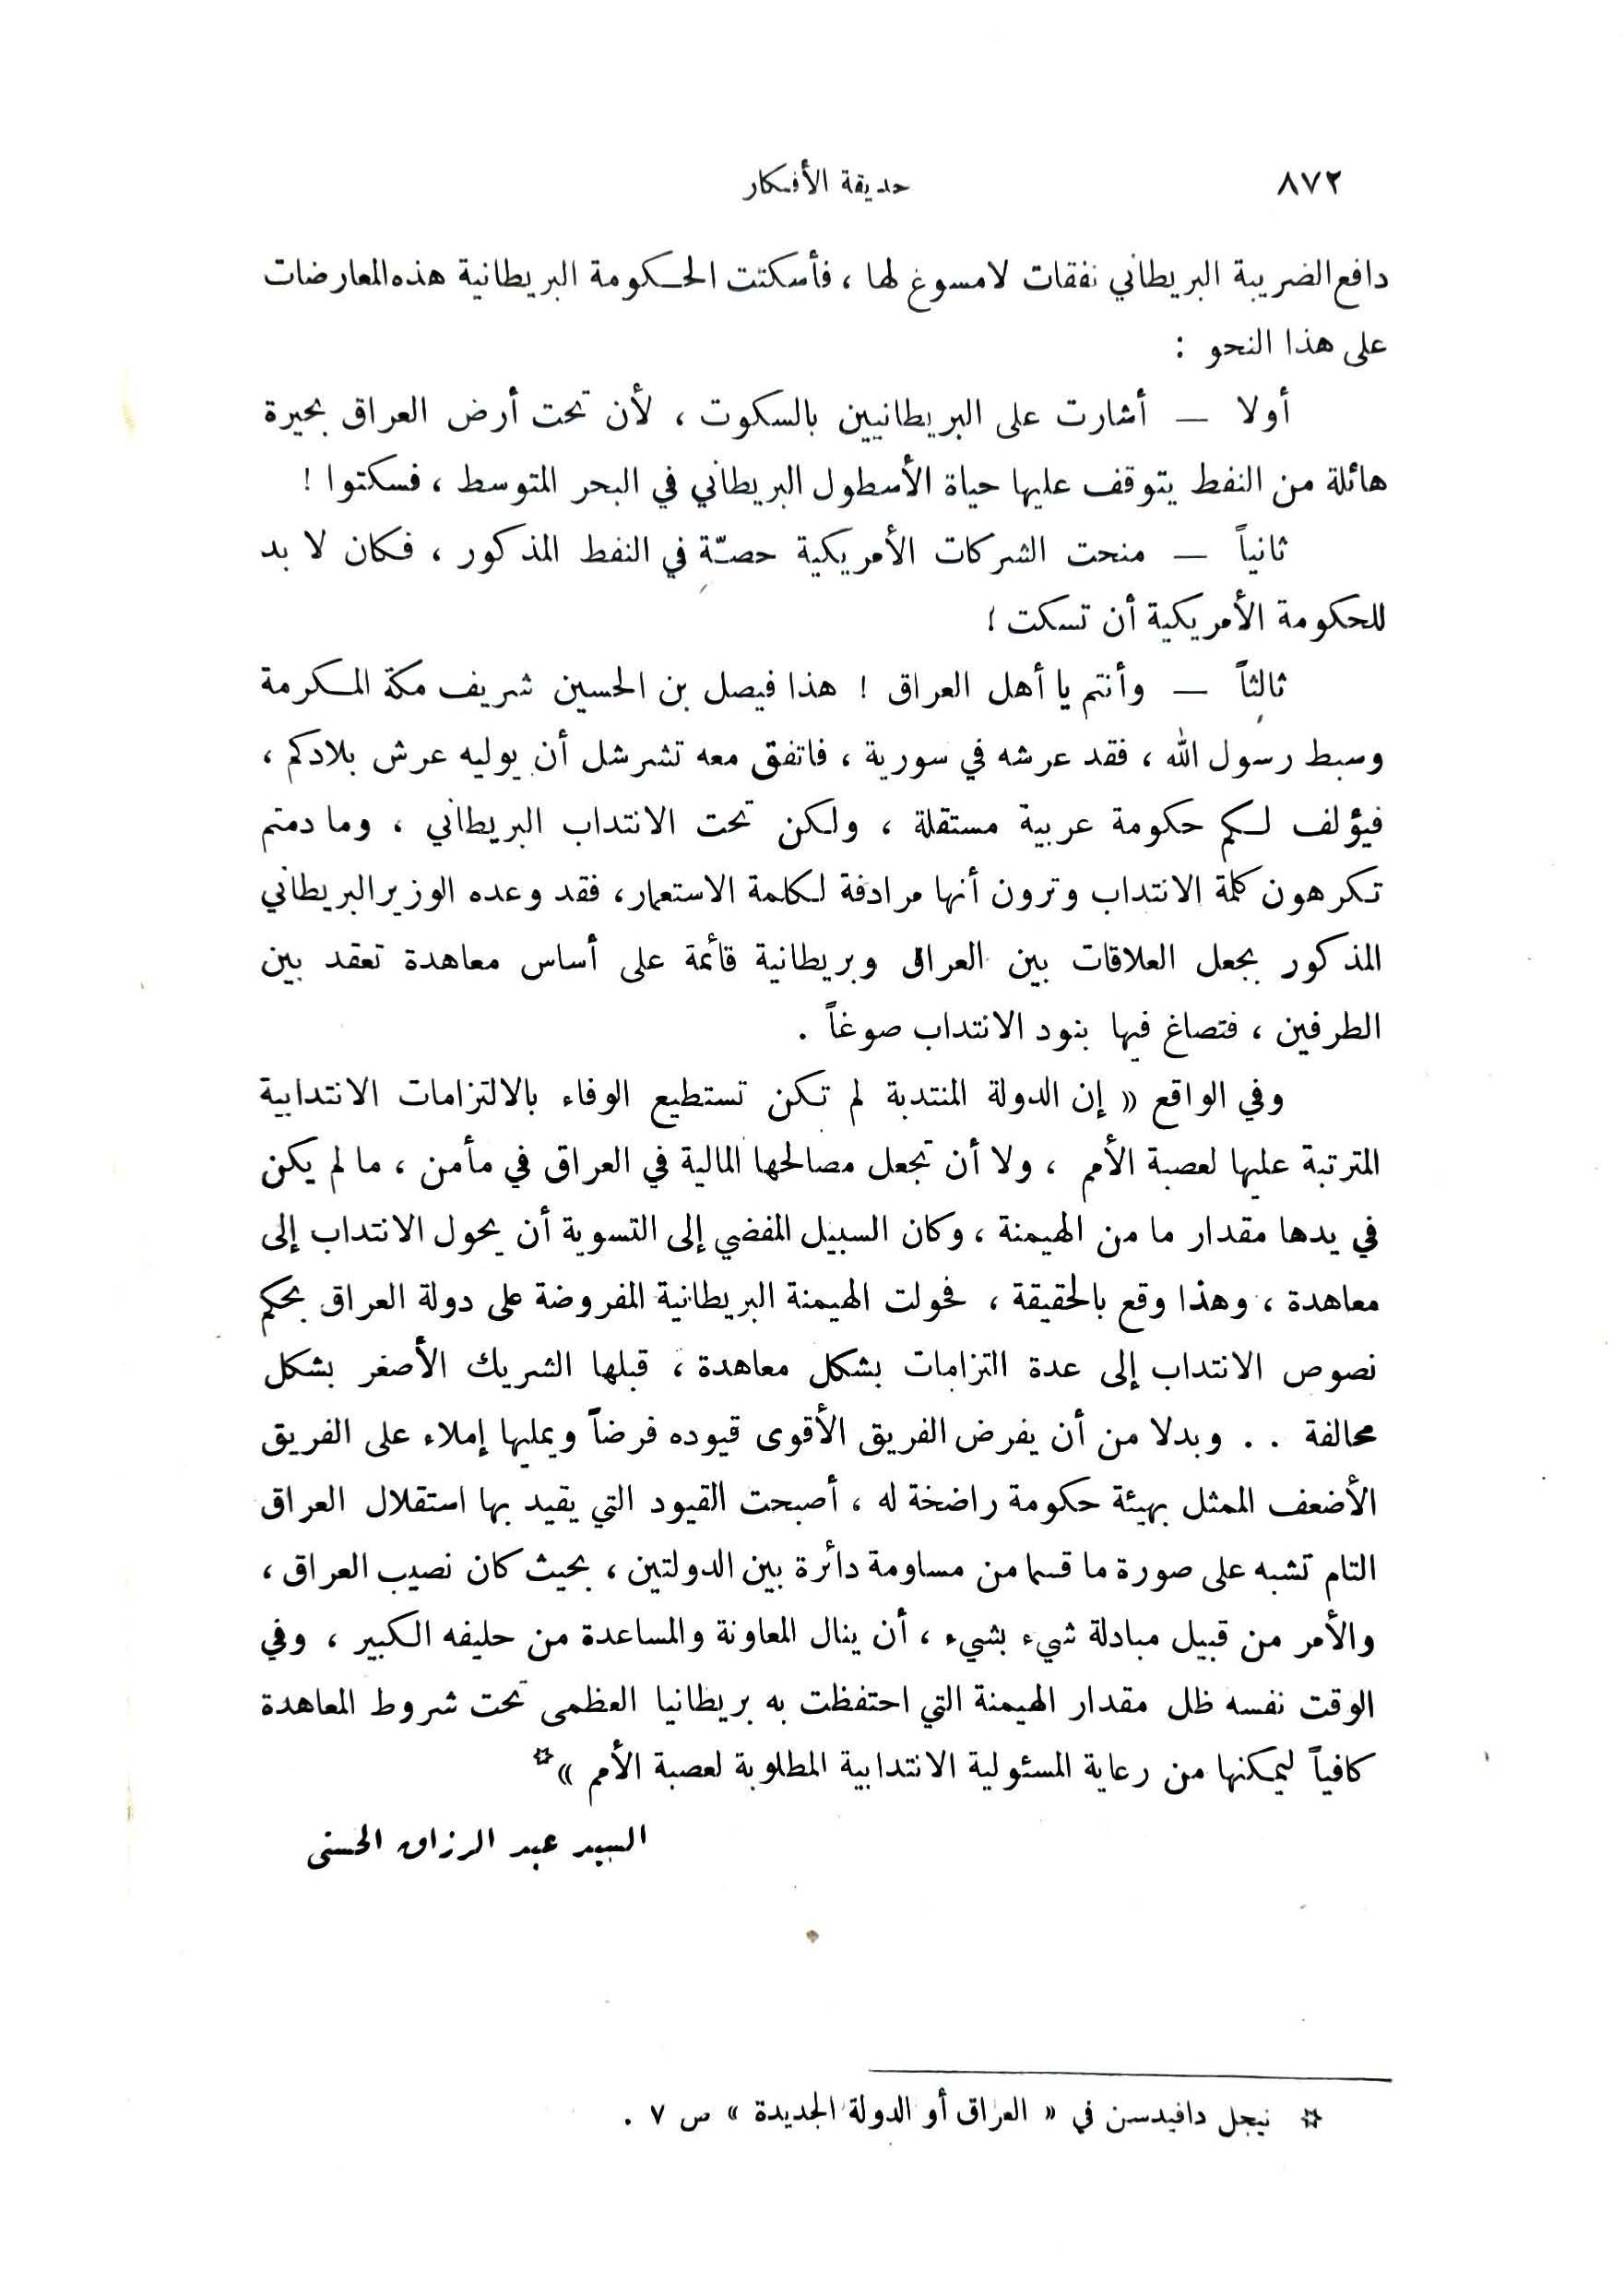 ٨٧٢ حديقة الأفكار
دافع الضريبة البريطاني نفقات لا مسوغ لها ، فأسكتت الحكومة البريطانية هذه المعارضات
على هذا النحو :
أولا — أشارت على البريطانيين بالسكوت ، لأن تحت أرض العراق بحيرة
هائلة من النفط يتوقف عليها حياة الأسطول البريطاني في البحر المتوسط ، فسكتوا !
ثانياً — منحت الشركات الأمريكية حصّة في النفط المذكور ، فكان لا بد
للحكومة الأمريكية أن تسكت !
ثالثاً — وأنتم يا أهل العراق ! هذا فيصل بن الحسين شريف مكة المكرمة
وسبط رسول الله ، فقد عرشه في سورية ، فاتفق معه تشرشل أن يوليه عرش بلادكم ،
فيؤلف لكم حكومة عربية مستقلة ، ولكن تحت الانتداب البريطاني ، وما دمتم
تكرهون كلمة الانتداب وترون أنها مرادفة لكلمة الاستعمار ، فقد وعده الوزير البريطاني
المذكور بجعل العلاقات بين العراق وبريطانية قائمة على أساس معاهدة تعقد بين
الطرفين ، فتصاغ فيها بنود الانتداب صوغاً .
وفي الواقع « إن الدولة المنتدبة لم تكن تستطيع الوفاء بالالتزامات الانتدابية
المترتبة عليها لعصبة الأمم ، ولا أن تجعل مصالحها المالية في العراق في مأمن ، ما لم يكن
في يدها مقدار ما من الهيمنة ، وكان السبيل المفضي إلى التسوية أن يحول الانتداب إلى
معاهدة ، وهذا وقع بالحقيقة ، فحولت الهيمنة البريطانية المفروضة على دولة العراق بحكم
نصوص الانتداب إلى عدة التزامات بشكل معاهدة ، قبلها الشريك الأصغر بشكل
محالفة . . وبدلا من أن يفرض الفريق الأقوى قيوده فرضاً ويمليها إملاء على الفريق
الأضعف الممثل بهيئة حكومة راضخة له ، أصبحت القيود التي يقيد بها استقلال العراق
التام تشبه على صورة ما قسما من مساومة دائرة بين الدولتين ، بحيث كان نصيب العراق ،
والأمر من قبيل مبادلة شيء بشيء ، أن ينال المعاونة والمساعدة من حليفه الكبير ، وفي
الوقت نفسه ظل مقدار الهيمنة التي احتفظت به بريطانيا العظمى تحت شروط المعاهدة
كافياً ليمكنها من رعاية المسئولية الانتدابية المطلوبة لعصبة الأمم »*
السيد عبد الرزاق الحسني
* نيجل دافيدسن في « العراق أو الدولة الجديدة » ص ٧ .